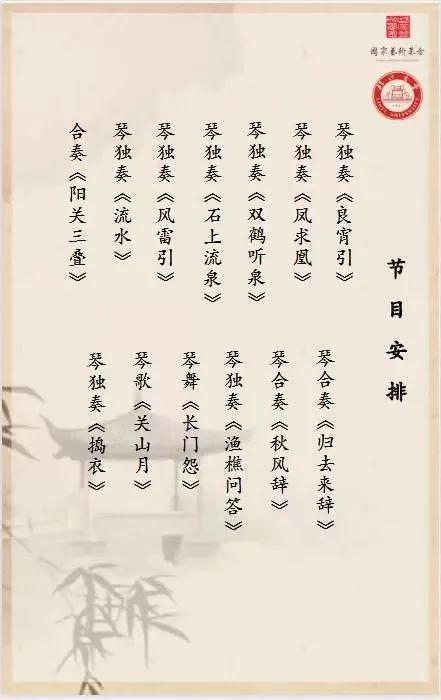 国家艺术基金
节目安排
琴独奏《良宵引》
琴独奏《凤求凰》
琴独奏《双鹤听泉》
琴独奏《石上流泉》
琴独奏《风雷引》
琴独奏《流水》
合奏《阳关三叠》
琴合奏《归去来辞》
琴合奏《秋风辞》
琴独奏《渔樵问答》
琴舞《长门怨》
琴歌《关山月》
琴独奏《捣衣》